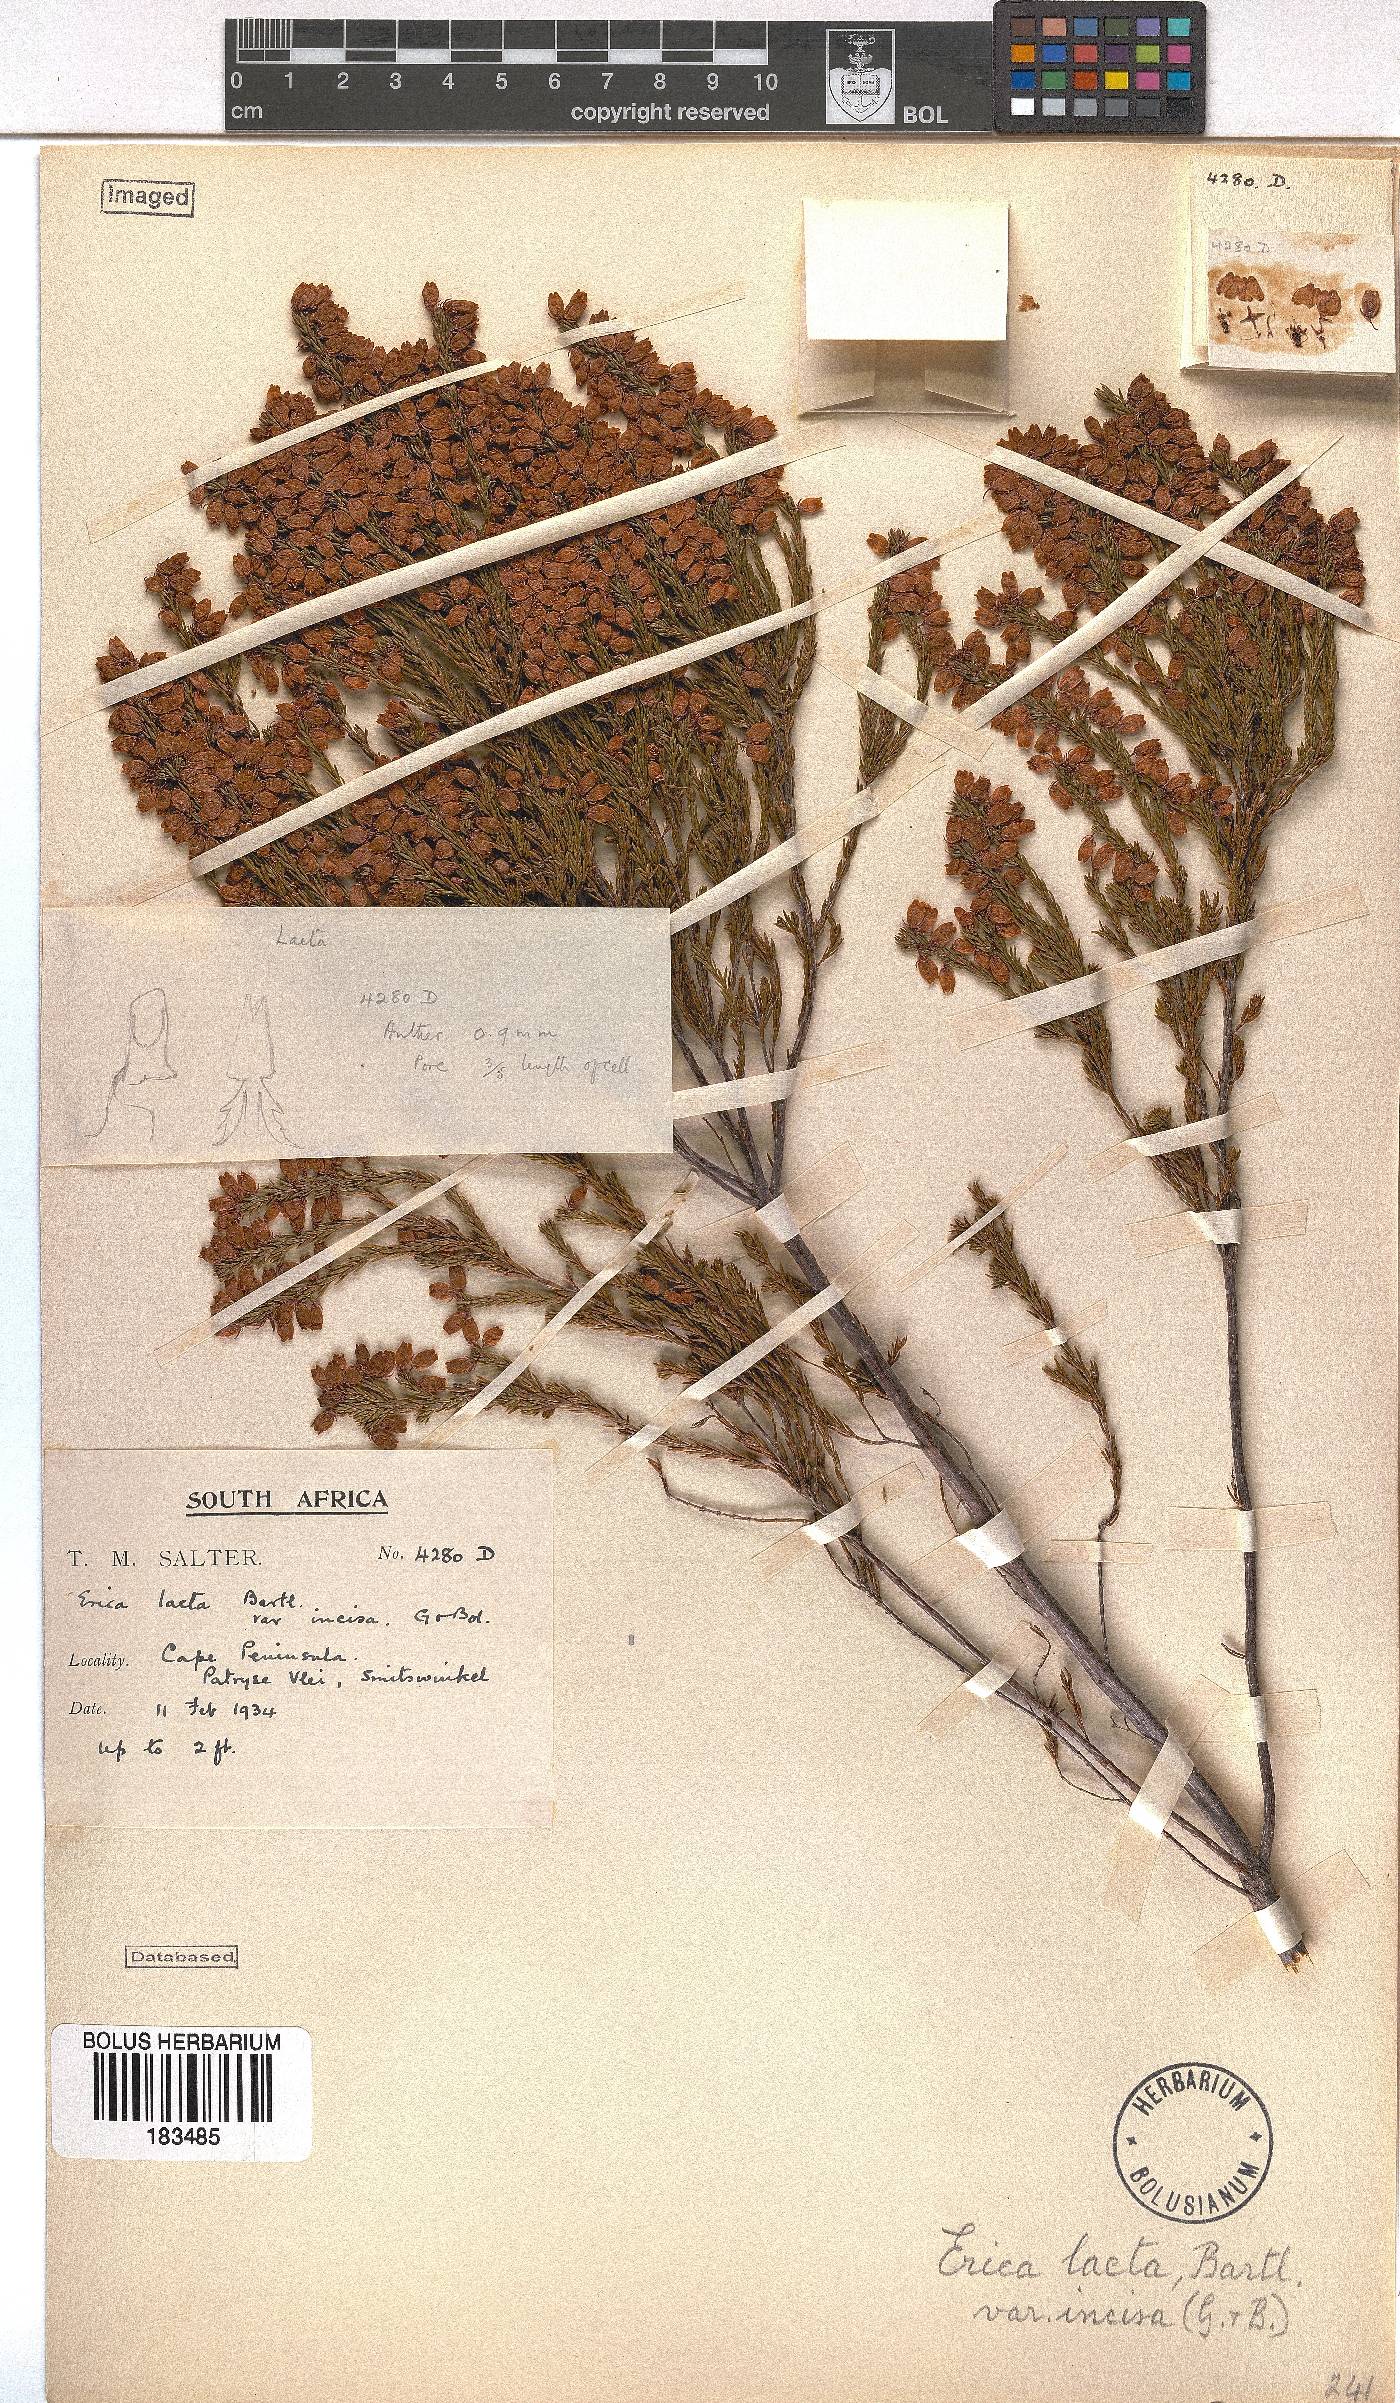 0 1 2 3 4 5 6 7 8 9 10
cm copyright reserved BOL
Imaged
4280. D.
4280 D
Laeta
4280 D
Anther 0.9 mm
Pore 3/5 length of cell
SOUTH AFRICA
T. M. SALTER. No. 4280 D
Erica laeta Bartl.
var incisa. G & Bol.
Locality. Cape Peninsula.
Patryse Vlei, Smitswinkel
Date. 11 Feb 1934
up to 2 ft.
Databased
BOLUS HERBARIUM
183485
HERBARIUM
BOLUSIANUM
Erica laeta, Bartl.
var. incisa (G. & B.)
241